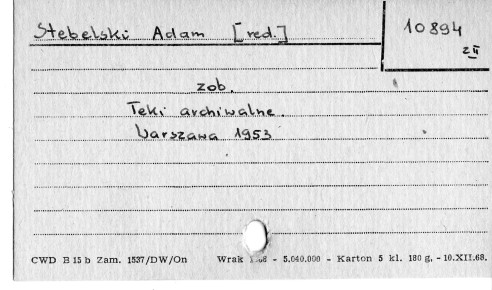 Stebelski Adam [red.]
10894
z II
zob.
Teki archiwalne.
Warszawa 1953
CWD B 15 b Zam. 1537/DW/On Wrak - 5.040.000 - Karton 5 kl. 180 g. - 10.XII.68.